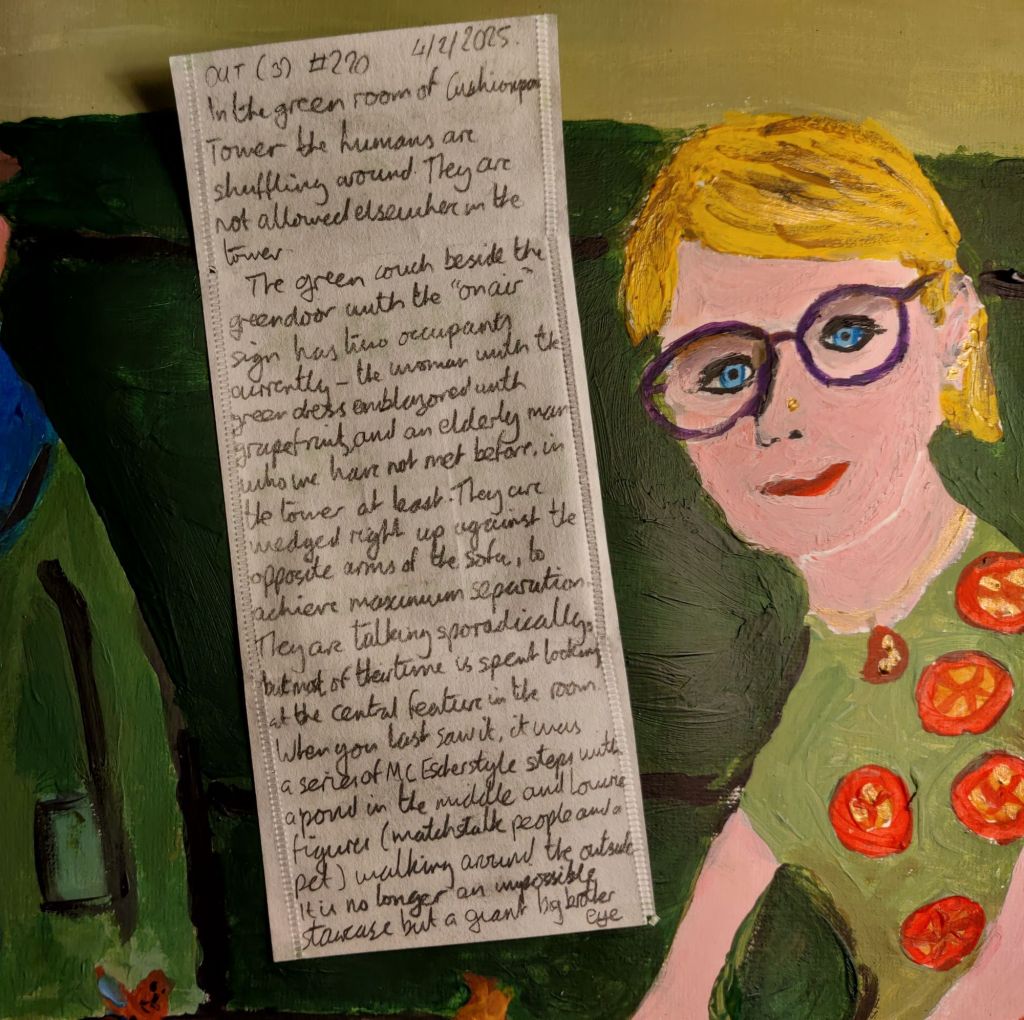 OUT (3) #220 4/2/2025.
In the green room of Cushionpan
Tower the humans are
shuffling around. They are
not allowed elsewher in the
tower.
The green couch beside the
greendoor with the "on air"
sign has two occupants
currently - the woman with the
green dress emblazored with
grapefruit, and an elderly man
who we have not met before, in
the tower at least. They are
wedged right up against the
opposite arms of the sofa, to
achieve maximum separation.
They are talking sporadically,
but most of their time is spent looking
at the central feature in the room.
When you last saw it, it was
a series of MC Escher style steps with
a pond in the middle and
figures (matchstalk people and a
pet) walking around the outside
It is no longer an impossible
staircase but a giant big brother
eye